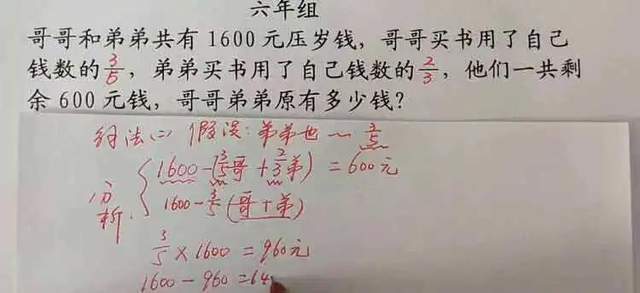 六年组
哥哥和弟弟共有1600元压岁钱，哥哥买书用了自己
钱数的3/5，弟弟买书用了自己钱数的2/3，他们一共剩
余600元钱，哥哥弟弟原有多少钱？
解法(二) 假设：弟弟也~3/5
分析 1600-(3/5哥+2/3弟)=600元
1600-3/5(哥+弟)
3/5×1600=960元
1600-960=64